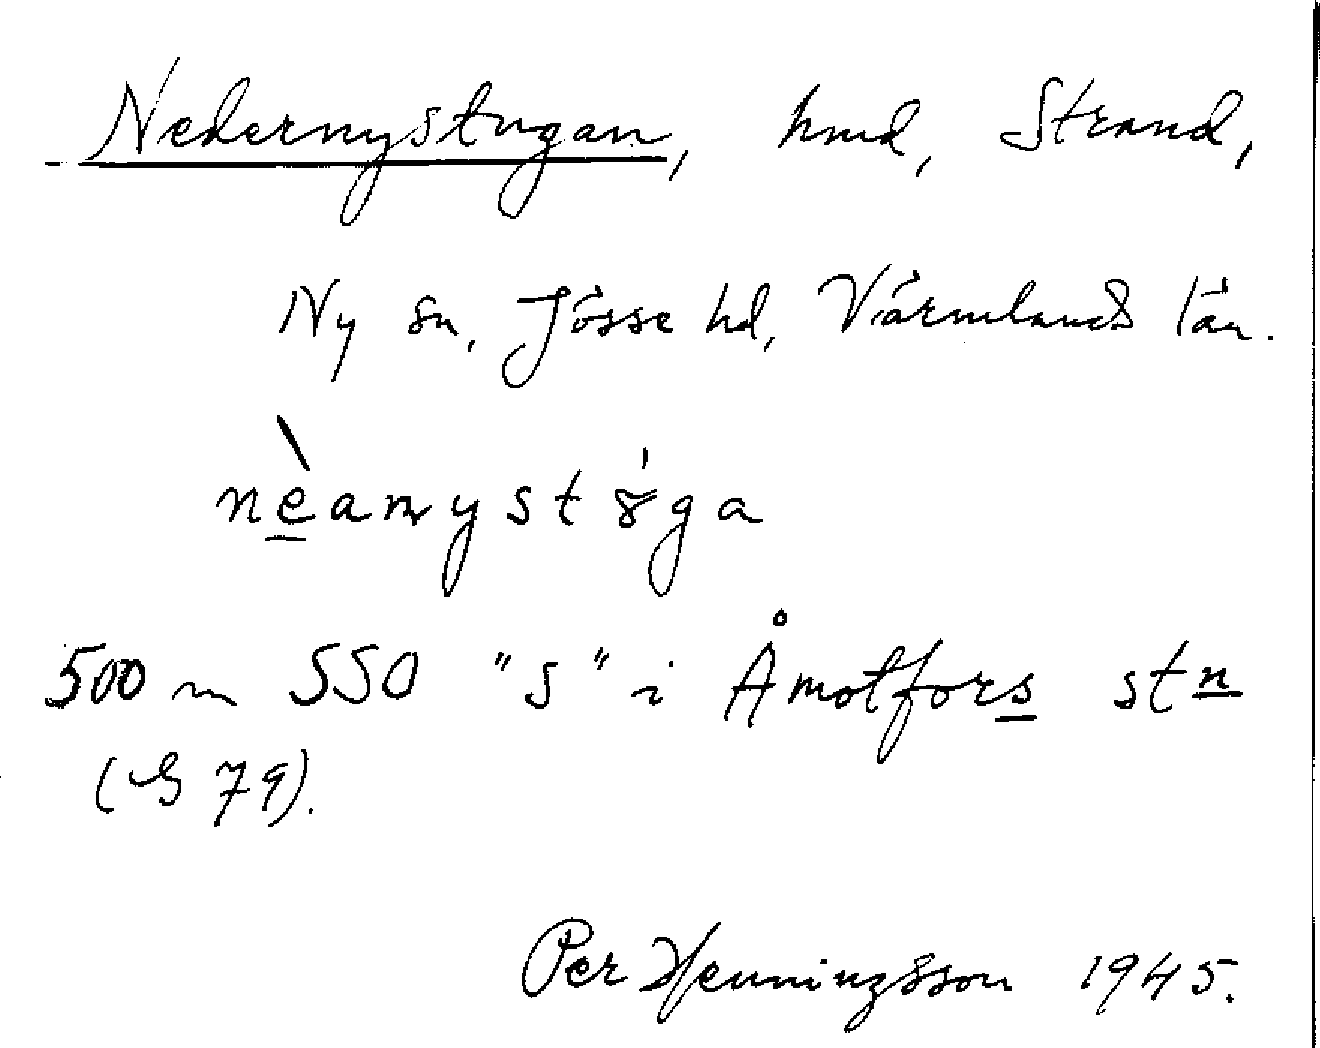 Nedernystugan, hmd, Strand,
Ny sn, Jösse hd, Värmlands län.
nèanystɤ́ga
500 m SSO "S" i Åmotfors stn
79).
Per Henningsson 1945.